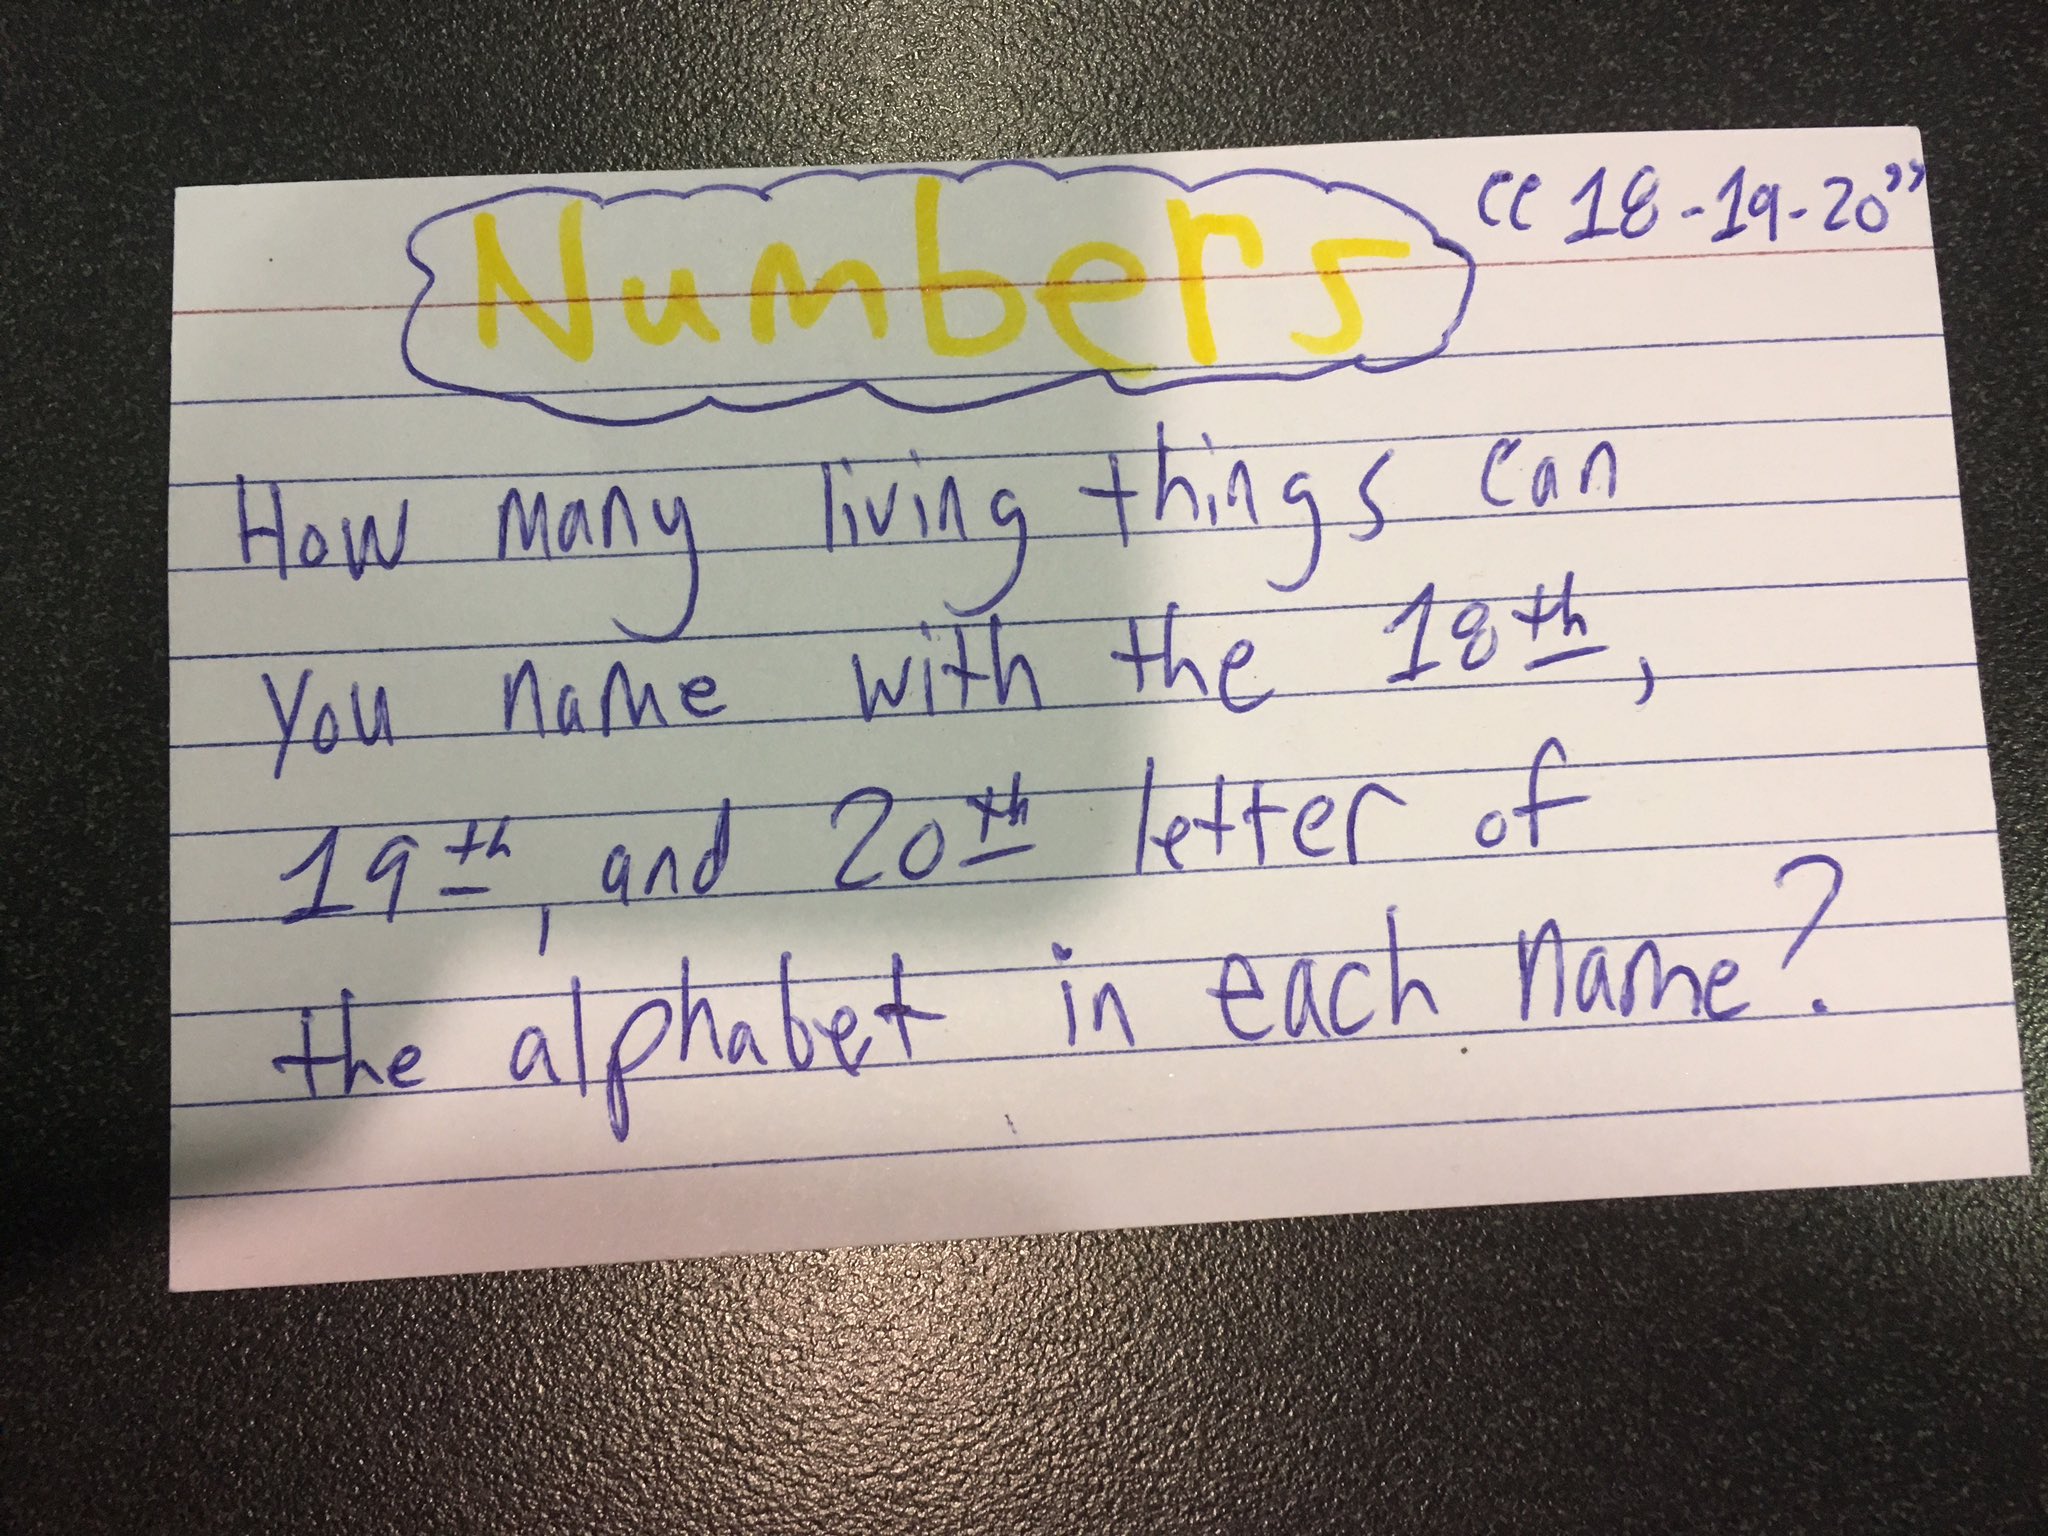 Numbers
"18-19-20"
How many living things can
you name with the 18th,
19th, and 20th letter of
the alphabet in each name?